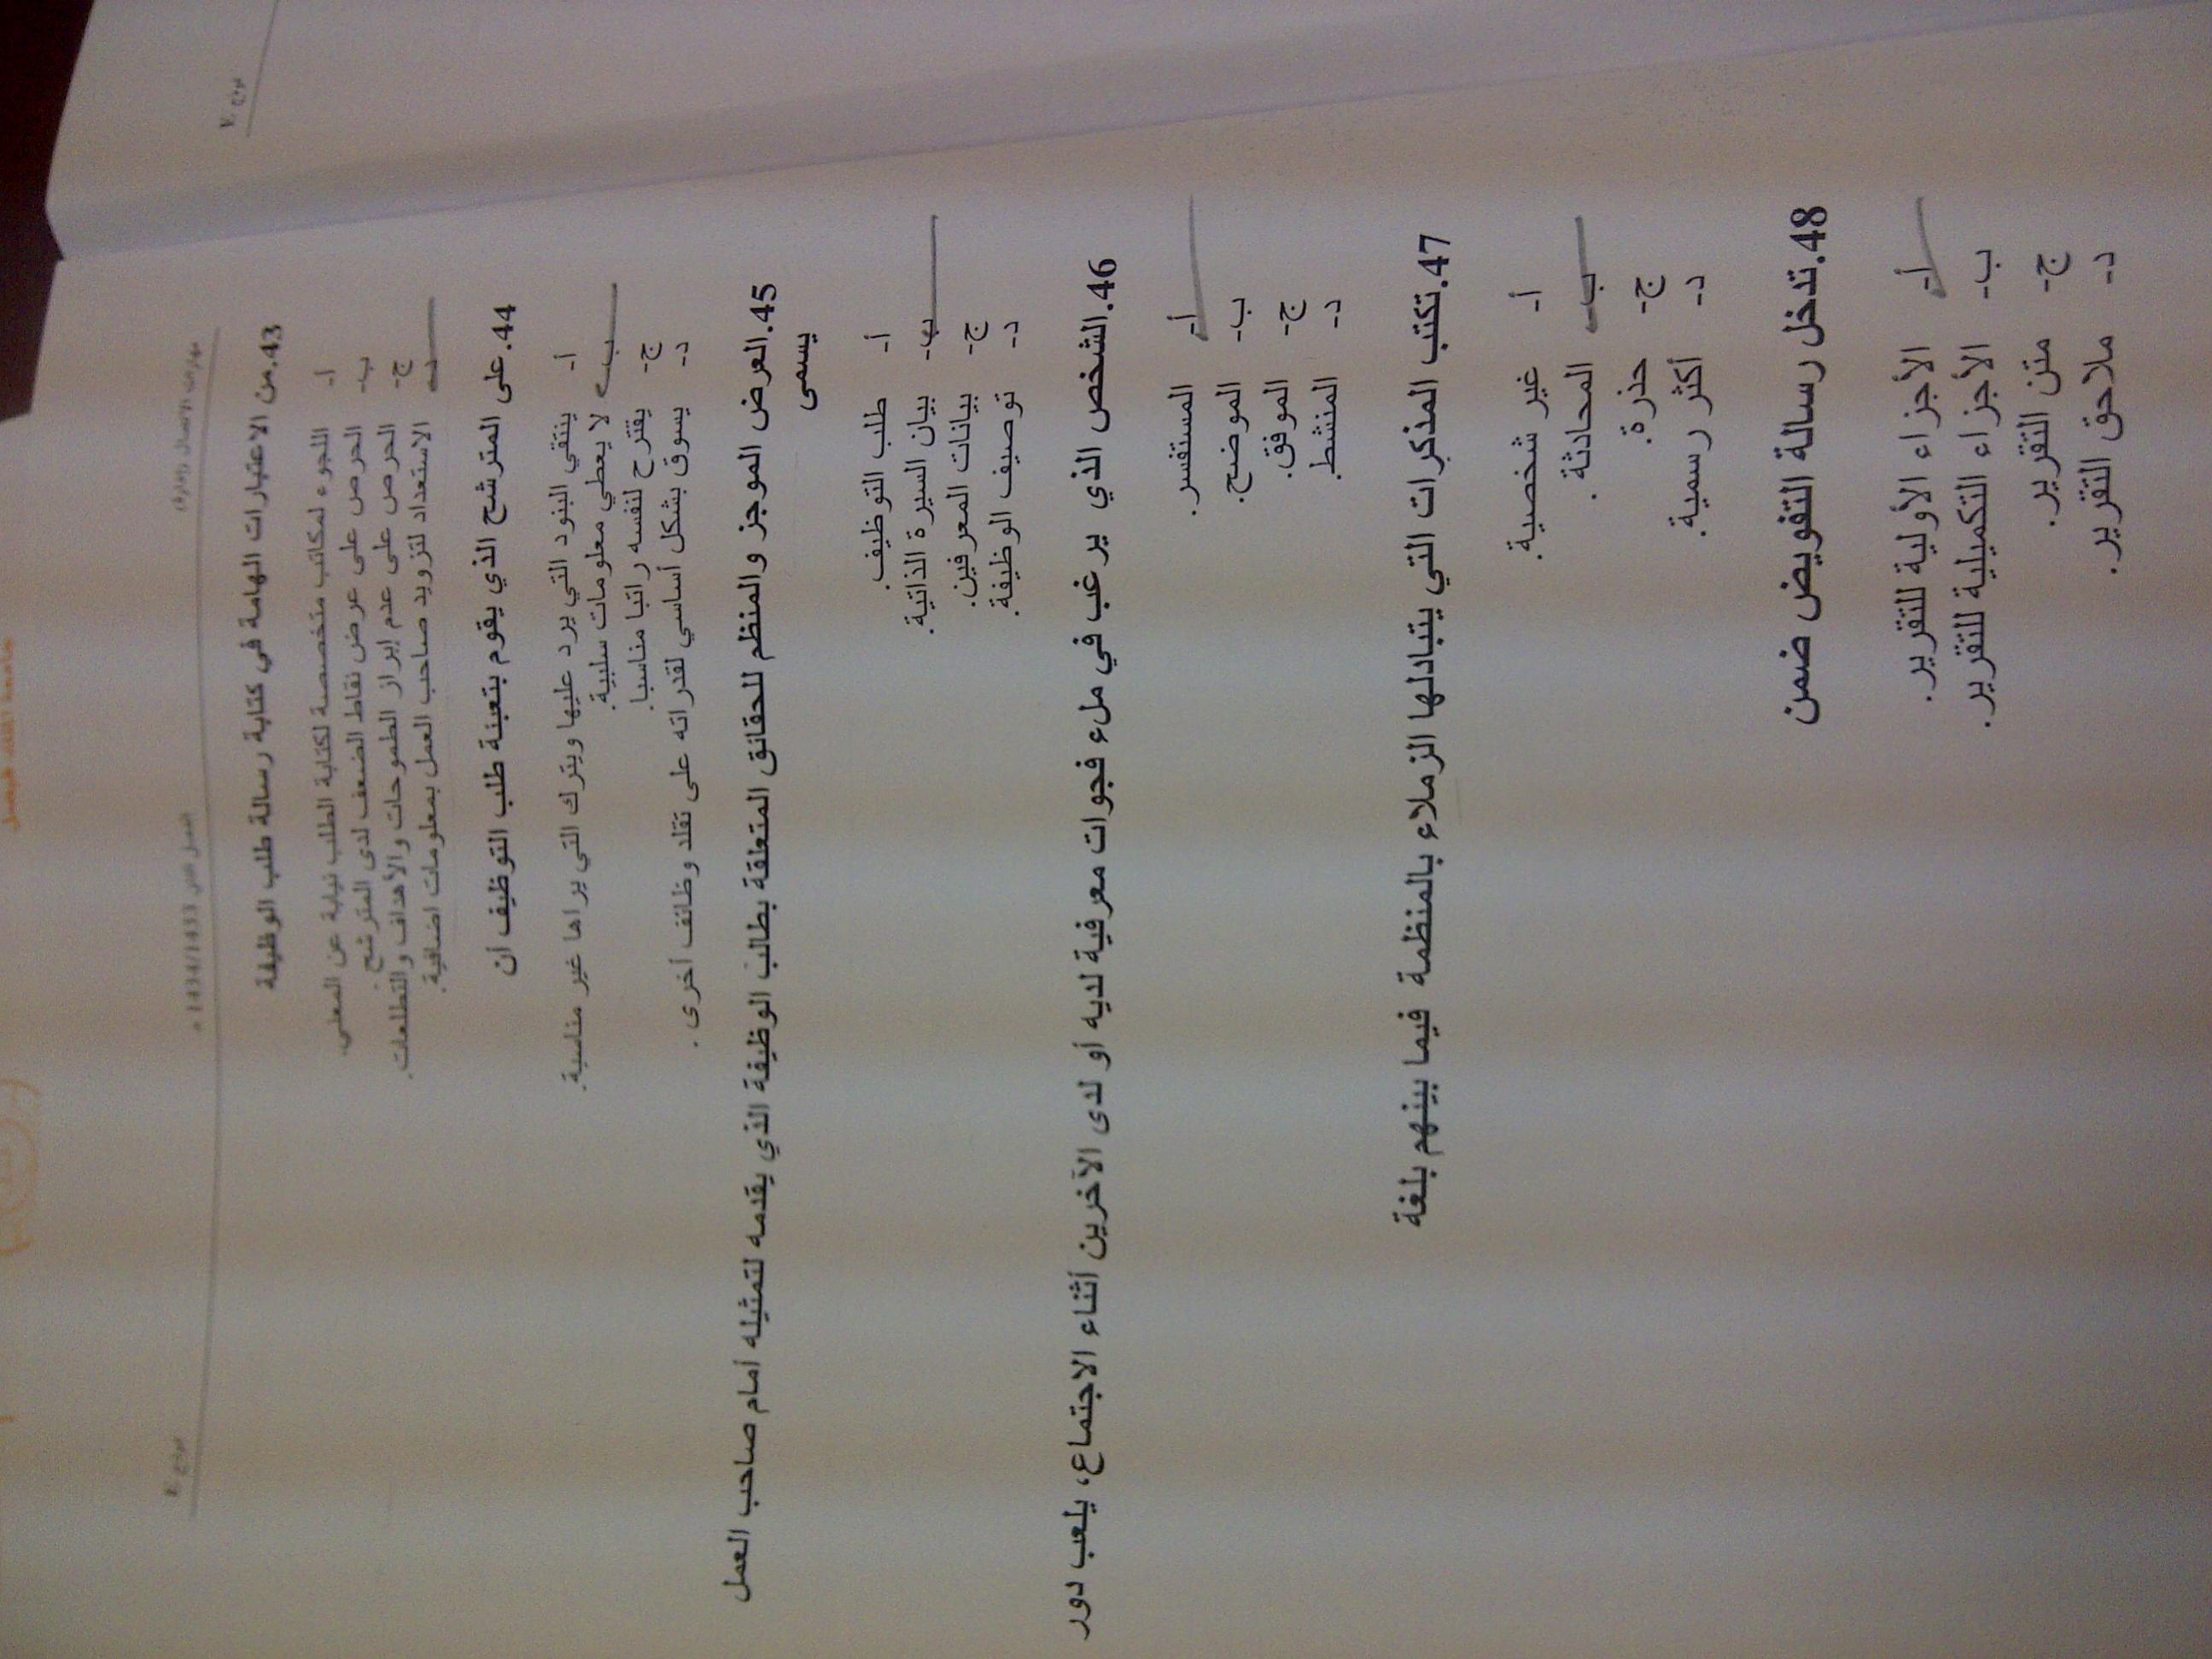 جامعة الملك فيصل
مهارات الاتصال
1434/1433
نموذج
43.من الاعتبارات الهامة في كتابة رسالة طلب الوظيفة
أ- اللجوء لمكاتب متخصصة لكتابة الطلب نيابة عن المعني.
ب- الحرص على عرض نقاط الضعف لدى المترشح.
ج- الحرص على عدم إبراز الطموحات والأهداف والتطلعات.
د- الاستعداد لتزويد صاحب العمل بمعلومات اضافية.
44.على المترشح الذي يقوم بتعبئة طلب التوظيف أن
أ- ينتقي البنود التي يرد عليها ويترك التي يراها غير مناسبة.
ب- لا يعطي معلومات سلبية.
ج- يقترح لنفسه راتبا مناسبا.
د- يسوق بشكل أساسي لقدراته على تقلد وظائف أخرى .
45.العرض الموجز والمنظم للحقائق المتعلقة بطالب الوظيفة الذي يقدمه لتمثيله أمام صاحب العمل
يسمى
أ- طلب التوظيف.
ب- بيان السيرة الذاتية.
ج- بيانات المعرفين.
د- توصيف الوظيفة.
46.الشخص الذي يرغب في ملء فجوات معرفية لديه أو لدى الآخرين أثناء الاجتماع، يلعب دور
أ- المستفسر.
ب- الموضح.
ج- الموفق.
د- المنشط.
47.تكتب المذكرات التي يتبادلها الزملاء بالمنظمة فيما بينهم بلغة
أ- غير شخصية.
ب- المحادثة .
ج- حذرة.
د- أكثر رسمية.
48.تدخل رسالة التفويض ضمن
أ- الأجزاء الأولية للتقرير.
ب- الأجزاء التكميلية للتقرير.
ج- متن التقرير.
د- ملاحق التقرير.
نموذج